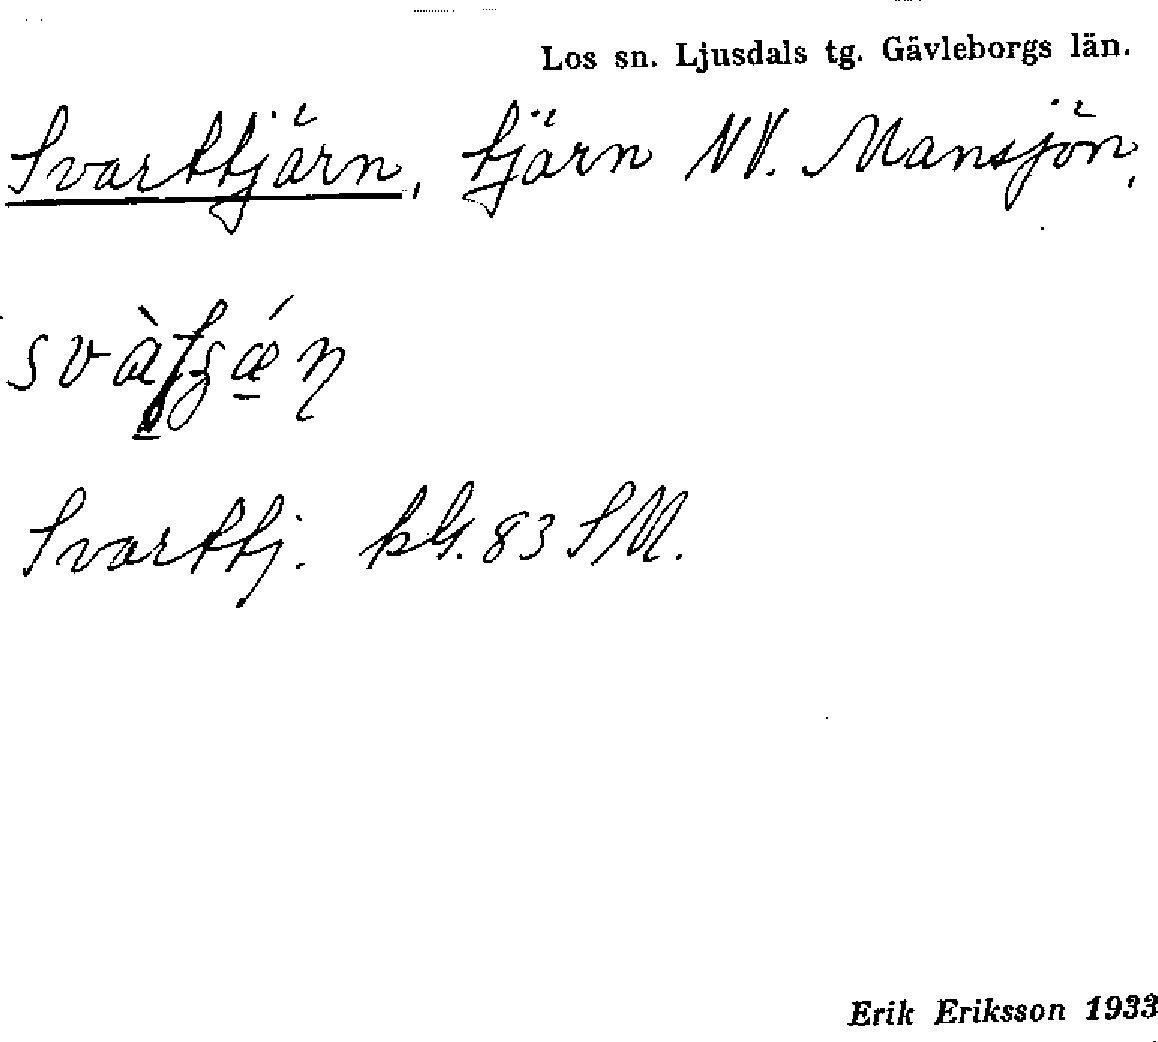 Los sn. Ljusdals tg. Gävleborgs län.
Svarttjärn, tjärn NV. Mansjön,
Svarttj. kbl. 83 SM.
Erik Eriksson 1933